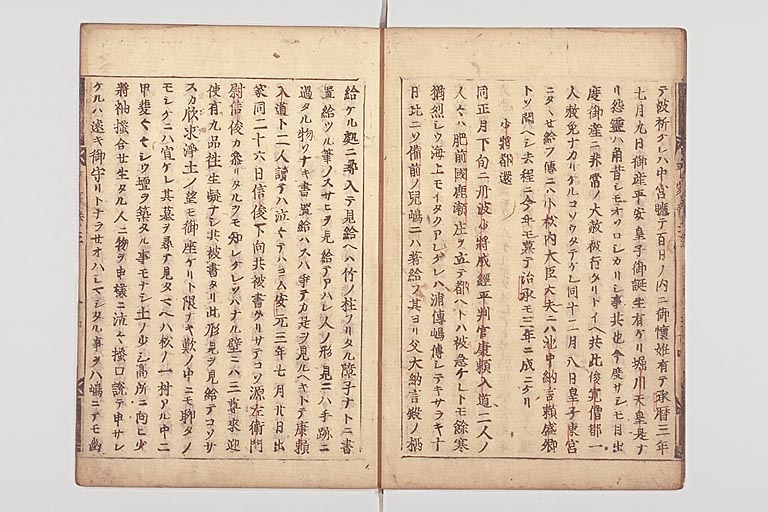 テ被祈ケレハ中宮軈テ百日ノ内ニ御懐姙有テ承暦三年
七月九日御産平安皇子御誕生有ケリ堀川天皇是ナ
リ怨霊ハ角昔シモオソロシカリシ事共也今度サシモ目出
度御産ニ非常ノ大赦被行タリトイヘ共此俊寛僧都一
人赦免ナカリケルコソウタテケレ同十二月八日皇子東宮
ニタヽセ給フ傅ニハ小松内大臣大夫ニハ池中納言頼盛卿
トソ聞ヘシ去程ニ今年モ暮テ治承モ三年ニ成ニケリ
少将都還
同正月下旬ニ丹波少将成経平判官康頼入道二人ノ
人々ハ肥前国鹿瀬庄ヲ立テ都ヘトハ被急ケレトモ餘寒
猶烈シウ海上モイタクアレケレハ浦傳嶋傳シテキサラキ十
日比ニソ備前ノ児嶋ニハ着給フ其ヨリ父大納言殿ノ栖
給ケル処ニ尋入テ見給ヘハ竹ノ柱フリタル障子ナトニ書
置給ツル筆ノスサミヲ見給テアハレ人ノ形見ニハ手跡ニ
過タル物ソナキ書置給ハスハ争テカ是ヲ見ルヘキトテ康頼
入道ト二人読テハ泣々テハヨム安元三年七月廿日出
家同二十六日信俊下向共被書タリサテコソ源左衛門
尉信俊カ参リタルヲモ知レケレソハナル壁ニハ三尊来迎
使有九品往生疑ナシ共被書タリ此形見ヲ見給テコソサ
スカ欣求浄土ノ望モ御座ケリト限ナキ歎ノ中ニモ聊タノ
モシケニハ宣ケレ其墓ヲ尋テ見タマヘハ松ノ一村アル中ニ
甲斐々々シウ壇ヲ築タル事モナシ土ノ少シ高所ニ向ヒ少
将袖掻合せ生タル人ニ物ヲ申様ニ泣々掻口説テ申サレ
ケルハ遠キ御守リトナラせオハシマシタル事ヲハ嶋ニテモ幽